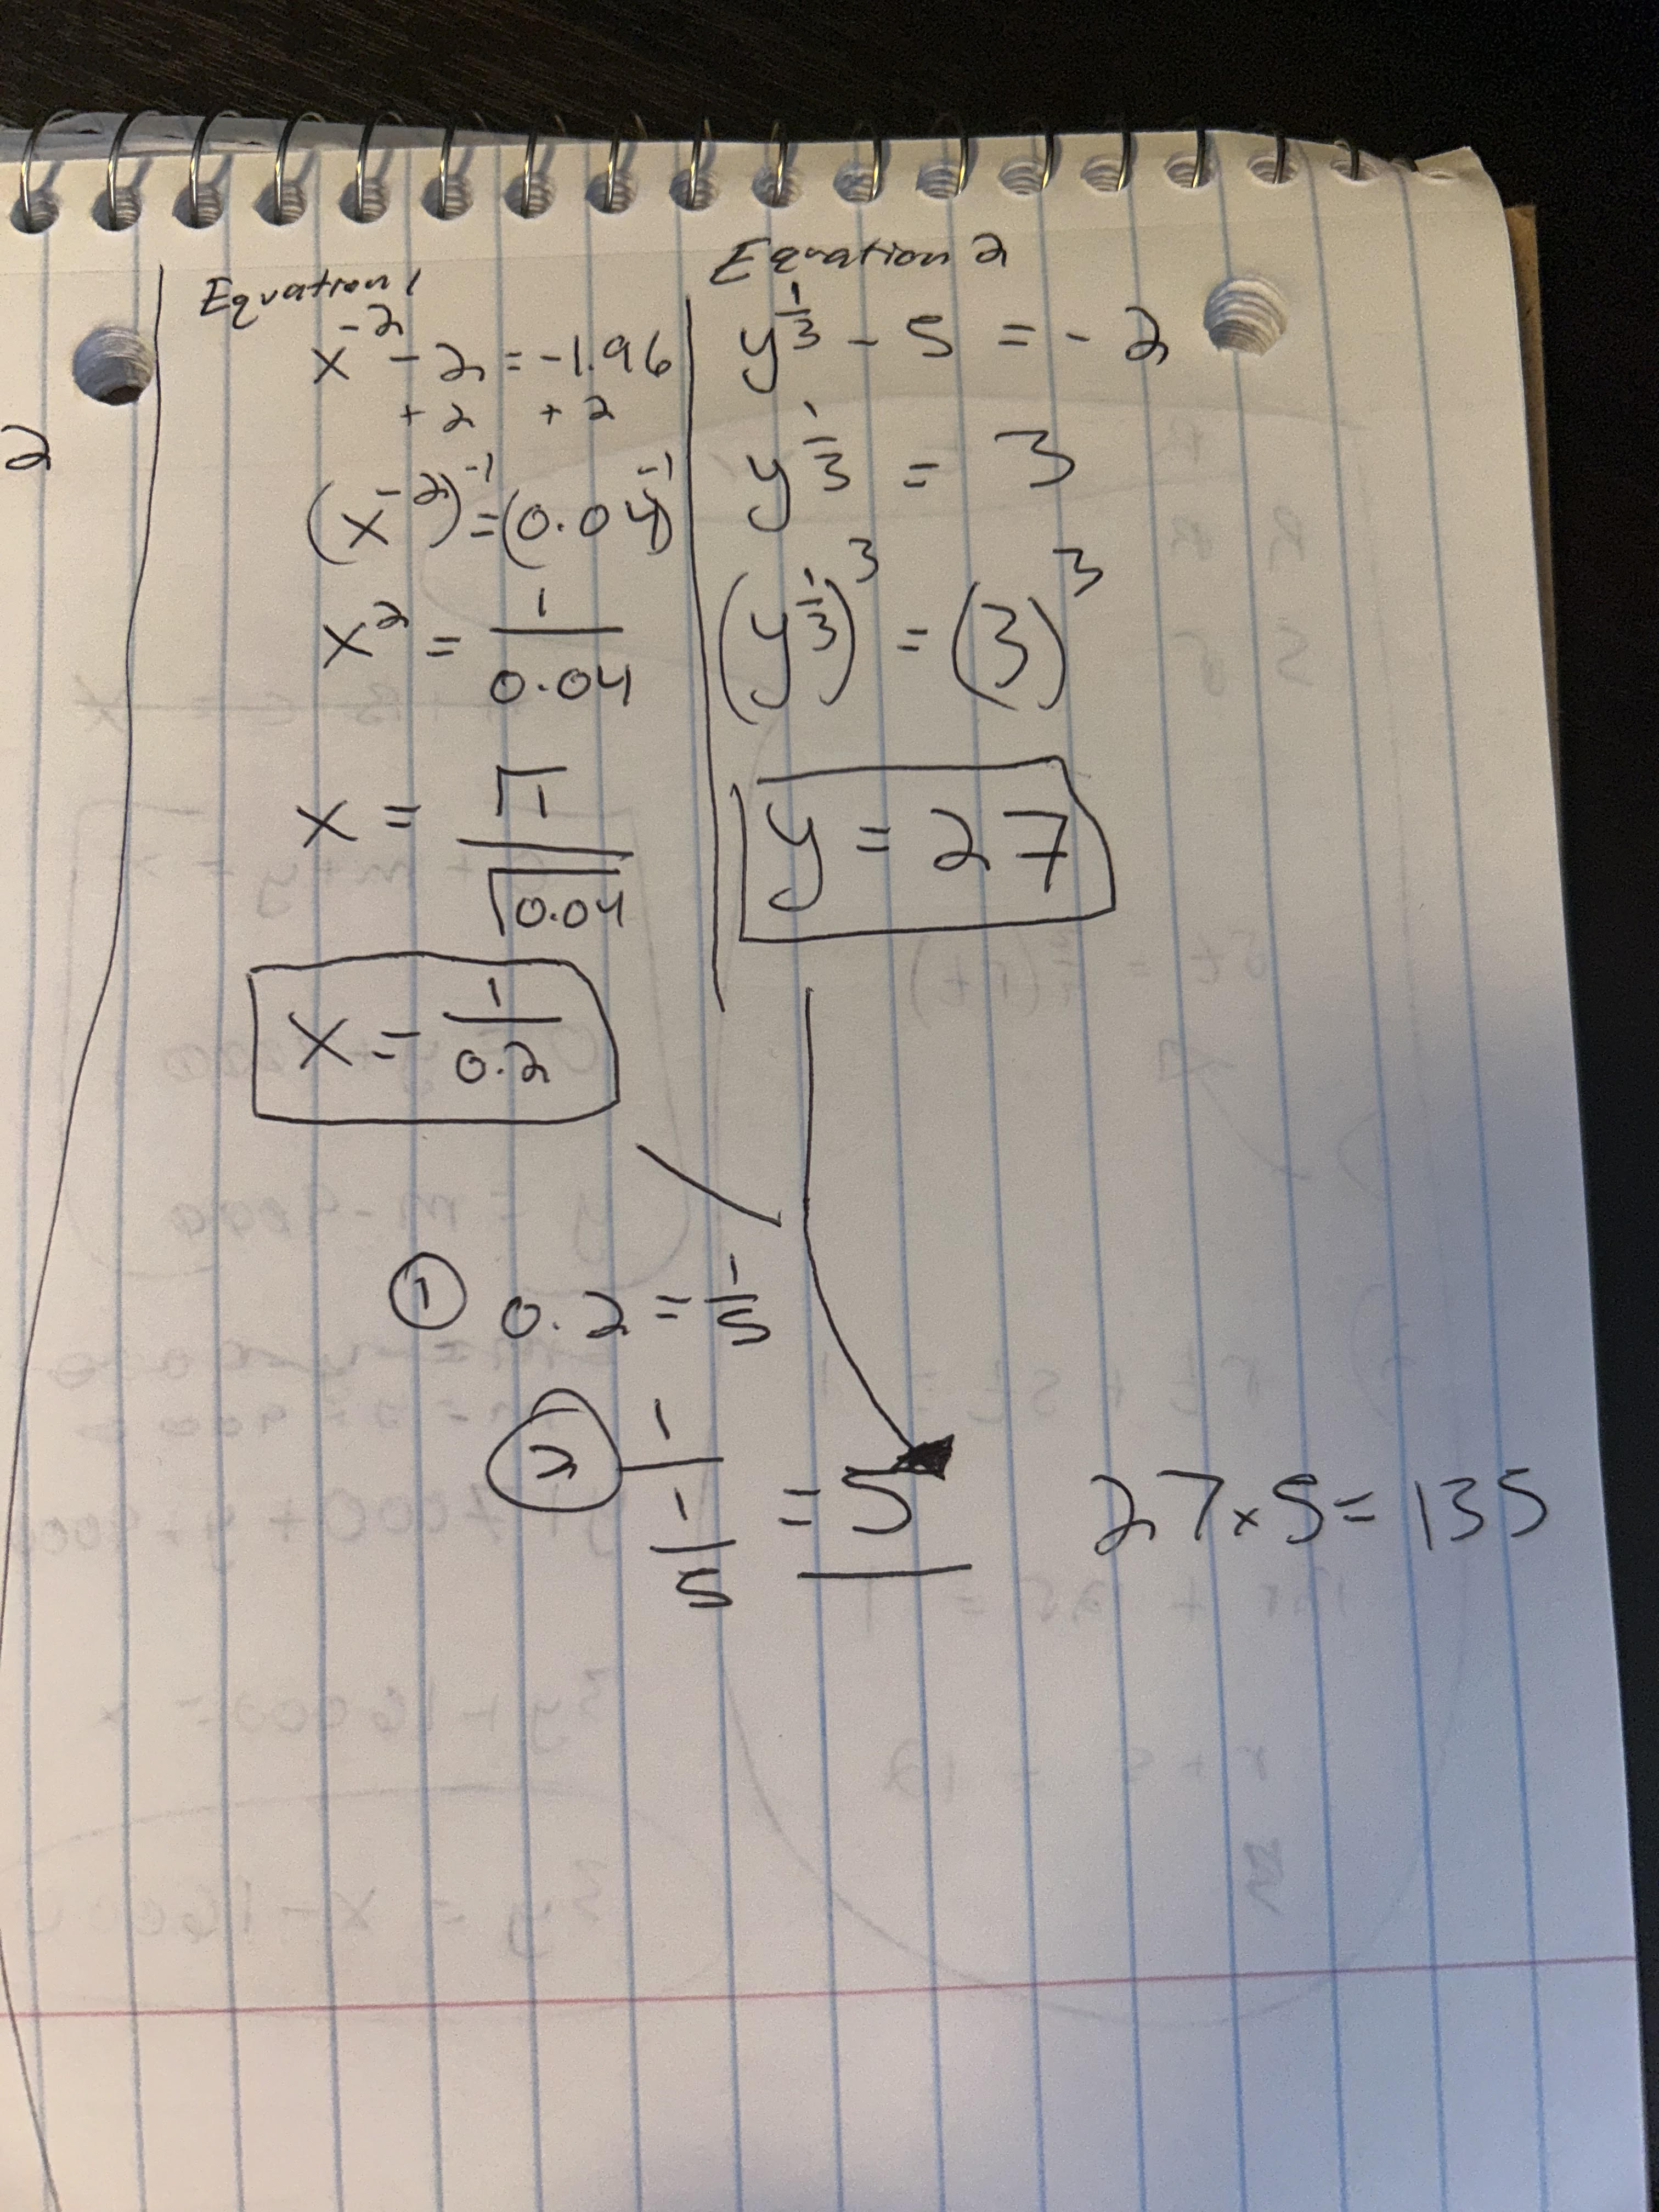 2
Equation 1
x^-2 - 2 = -1.96
+2 +2
(x^-2)^-1 = (0.04)^-1
x^2 = 1/0.04
x = √1/√0.04
x = 1/0.2
Equation 2
y^1/3 - 5 = -2
y^1/3 = 3
(y^1/3)^3 = (3)^3
y = 27
① 0.2 = 1/5
② 1/(1/5) = 5
27 x 5 = 135